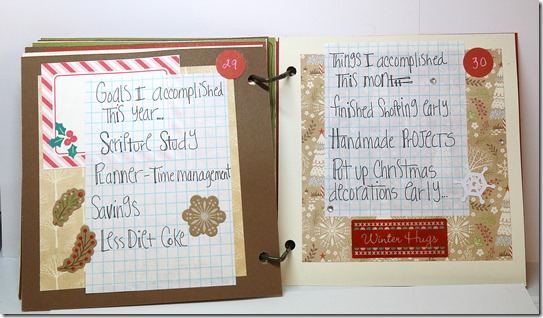 29
Goals I accomplished
This year...
Scripture Study
Planner - Time management
Savings
Less Diet Coke
30
Things I accomplished
This month
finished shopping early
Handmade PROJECTS
Put up Christmas
decorations early...
Winter Hugs